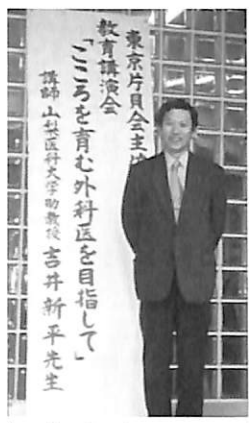 東京片貝会主
教育講演会
「こころを育む外科医を目指して」
講師 山梨医科大学助教授 吉井新平先生